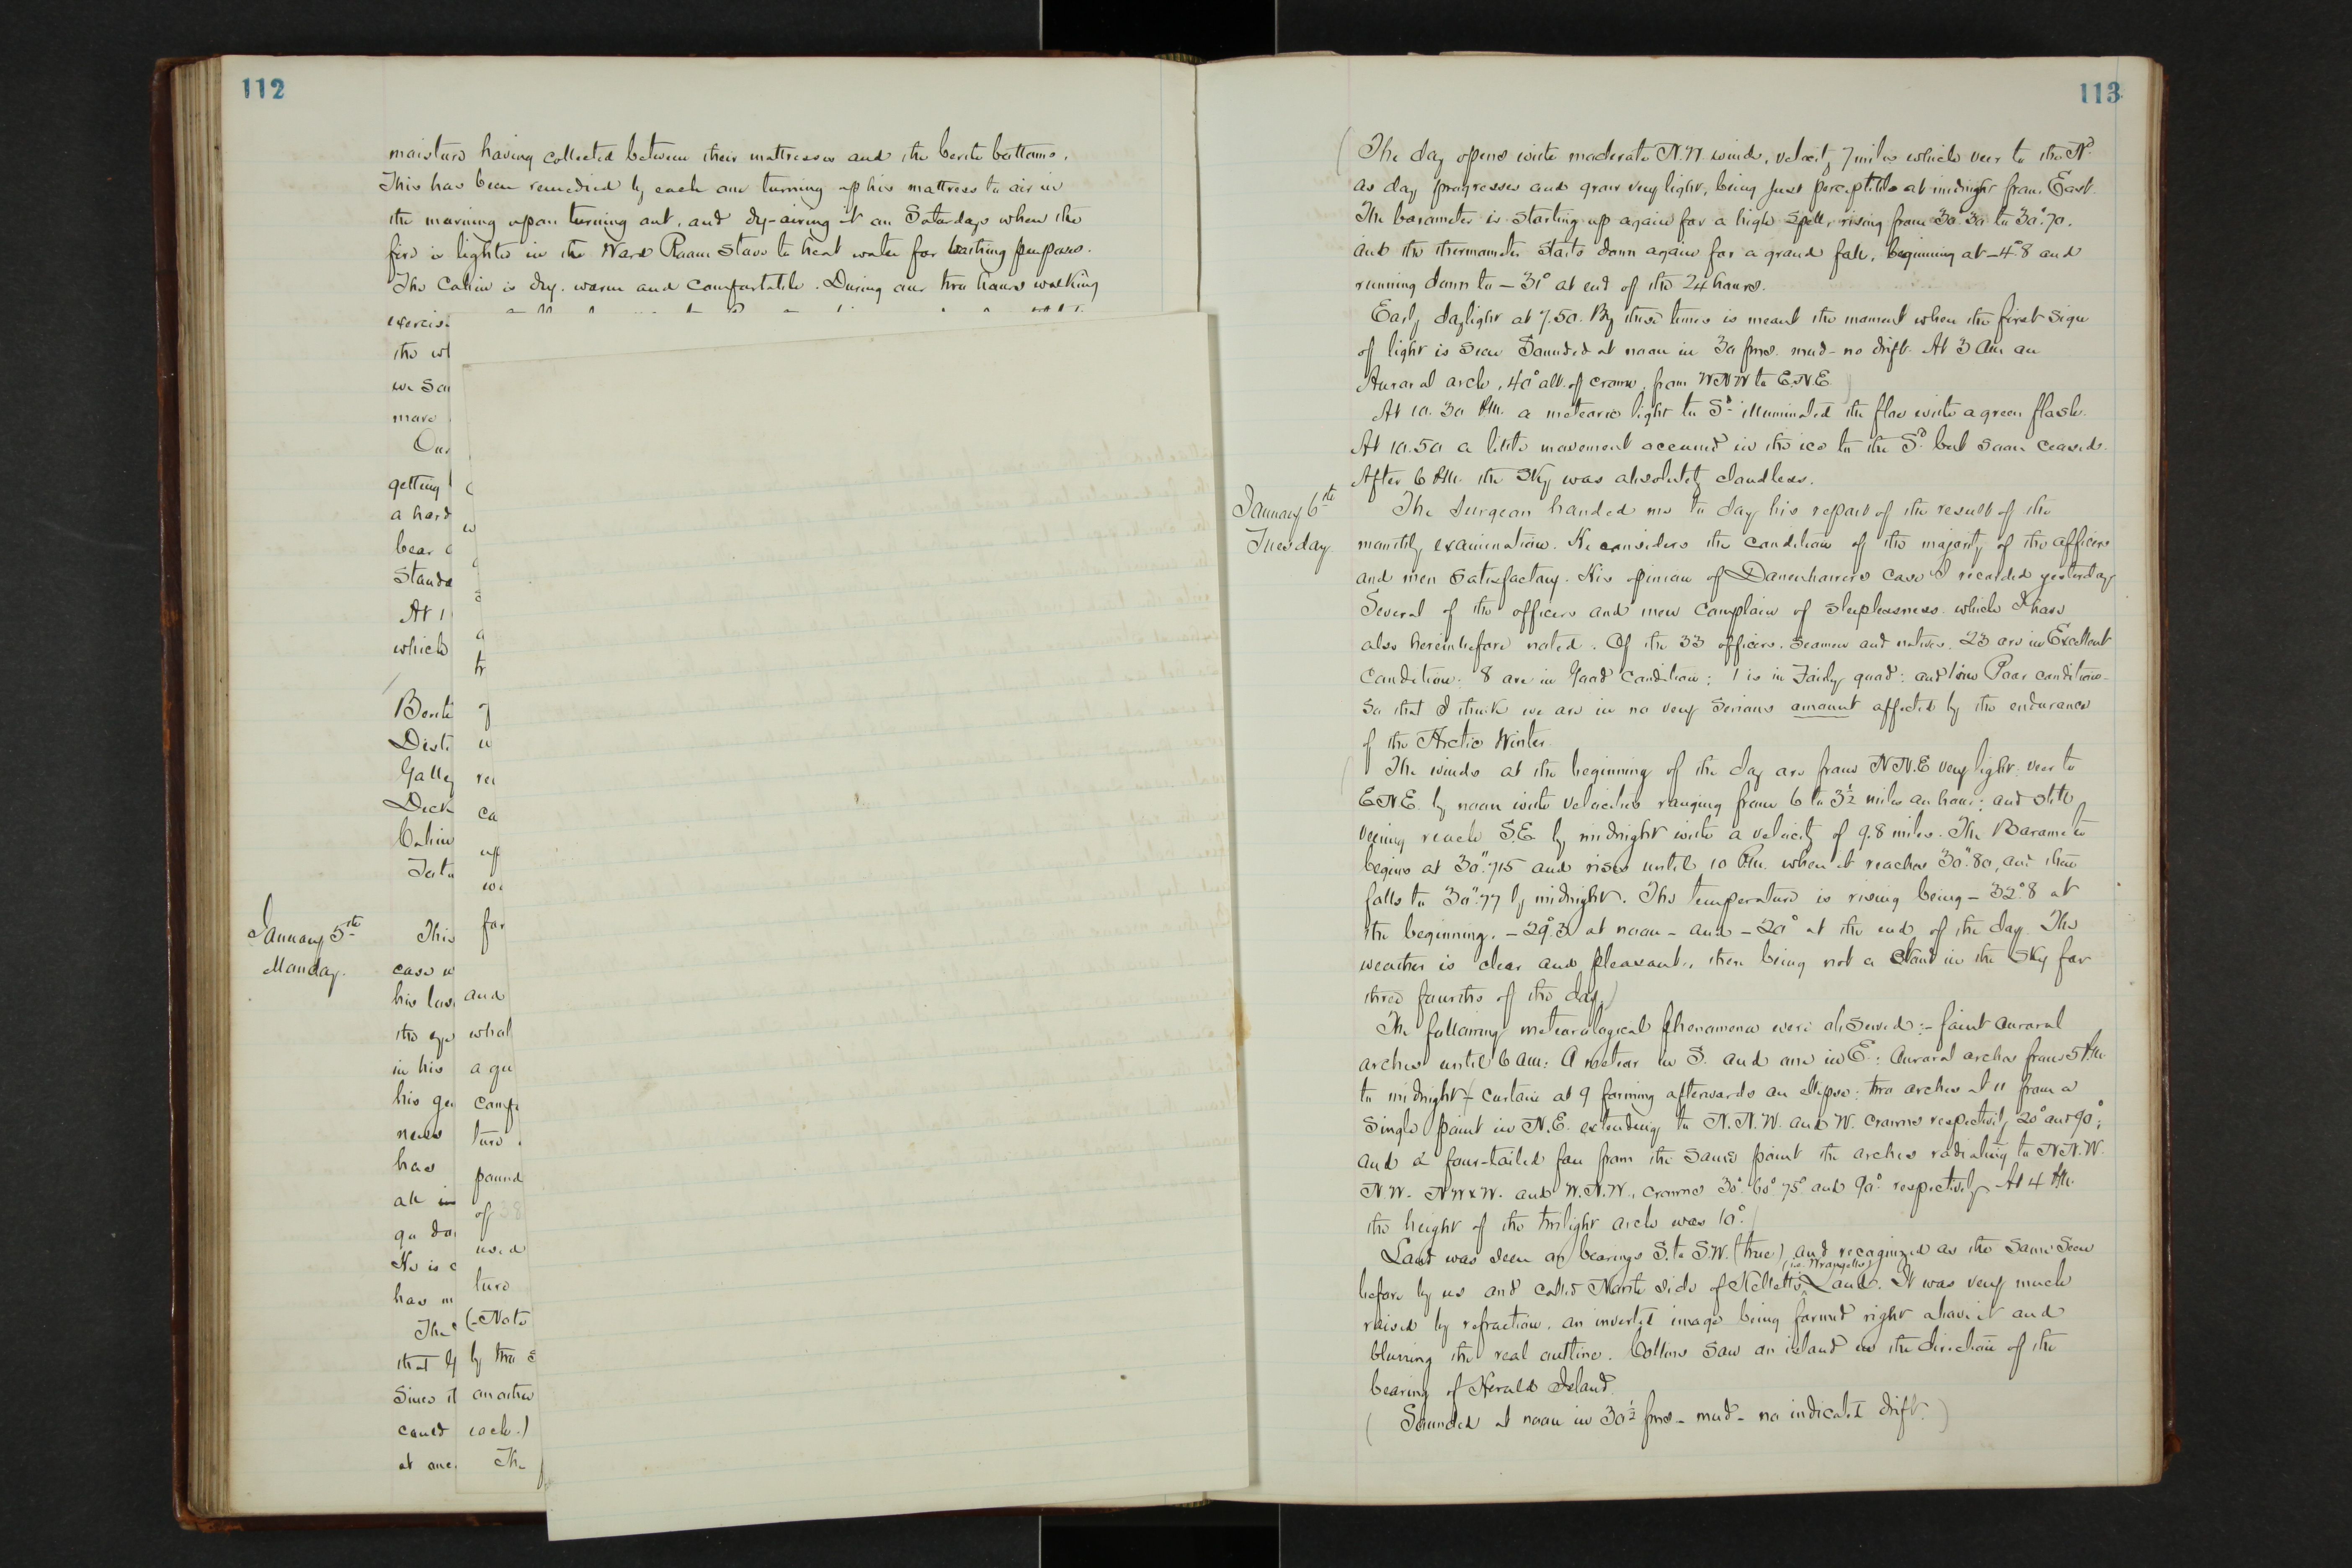 112
moisture having collected between their mattresses and the berth bottoms.
This has been remedied by each one turning up his mattress to air in
the morning upon turning out, and by airing it on Saturdays when the
fire is lighted in the Ward Room stove to heat water for bathing purposes.
The Cabin is dry, warm and comfortable. During our two hours walking
exercise
the wh
we sa
more
Our
getting
a hard
bear
Stand
At 1
which
Berth
Disti
Galley
Deck
Cabin
Tota
January 5th
Monday.
This
case w
his las
the op
in his
his ge
news
has
all
go do
He is
has m
The
that
Since it
could
at once
tr
of
w
re
ca
up
we
for
and
what
a qu
comf
ture
pound
of 38
used
ture
(Note
by the s
another
each.)
The
113
(The day opens with moderate N.W. winds, velocity 7 miles which veer to the Nd.
as day progresses and grow very light, being just perceptible at midnight from East.
The barometer is starting up again for a high spell, rising from 30".30 to 30".70.
and the thermometer starts down again for a grand fall, beginning at -4°.8 and
running down to - 31° at end of the 24 hours.
Early daylight at 7.50. By these times is meant the moment when the first sign
of light is seen Sounded at noon in 30 fms. mud - no drift. At 3 AM an
Auroral arch, 40° alt. of crown, from WNW to E.N.E.)
At 10.30 AM. a meteoric light to Sd. illuminated the floe with a green flash.
At 10.50 a little movement occurred in the ice to the Sd. but soon ceased.
After 6 PM. the sky was absolutely cloudless.
January 6th
Tuesday
The Surgeon handed me to day his report of the result of the
monthly examination. He considers the condition of the majority of the officers
and men satisfactory. His opinion of Danenhower's case I recorded yesterday
Several of the officers and men complain of sleeplessness which I have
also hereinbefore noted. Of the 33 officers, seamen and natives, 23 are in Excellent
condition: 8 are in Good condition; 1 is in Fairly good: and 1 in Poor condition -
So that I think we are in no very serious amount affected by the endurance
of the Arctic Winter.
(The winds at the beginning of the day are from N.N.E very light: veer to
E.N.E. by noon with velocities ranging from 6 to 3½ miles an hour; and still
veering reach S.E. by midnight with a velocity of 9.8 miles. The Barometer
begins at 30".715 and rises until 10 P.M. when it reaches 30".80, and then
falls to 30".77 by midnight. The temperature is rising being - 32°.8 at
the beginning, - 29°.3 at noon - and - 20° at the end of the day. The
weather is clear and pleasant, there being not a cloud in the sky for
three fourths of the day.)
The following meteorological phenomena were observed:- faint auroral
arches until 6 AM: A meteor in S. and one in E.: Auroral arches from 5 P.M.
to midnight - Curtain at 9 forming afterwards an ellipse: two arches at 11 from a
single point in N.E. extending to N.N.W. and W. crowns respectively 20° and 90°;
and a four-tailed fan from the same point the arches radiating to N.N.W.
N.W. NWxW. and W.N.W., crowns 30° 60° 75° and 90° respectively - At 4 PM.
the height of the twilight arch was 10°.)
Land was seen on bearings S. to S.W. (true) and recognized as the same seen
before by us and called North side of Kellett's (i.e. Wrangell's) Land. It was very much
raised by refraction, an inverted image being formed right above it and
blurring the real outline. Collins saw an island in the direction of the
bearing of Herald Island.
(Sounded at noon in 30½ fms - mud - no indicated drift.)